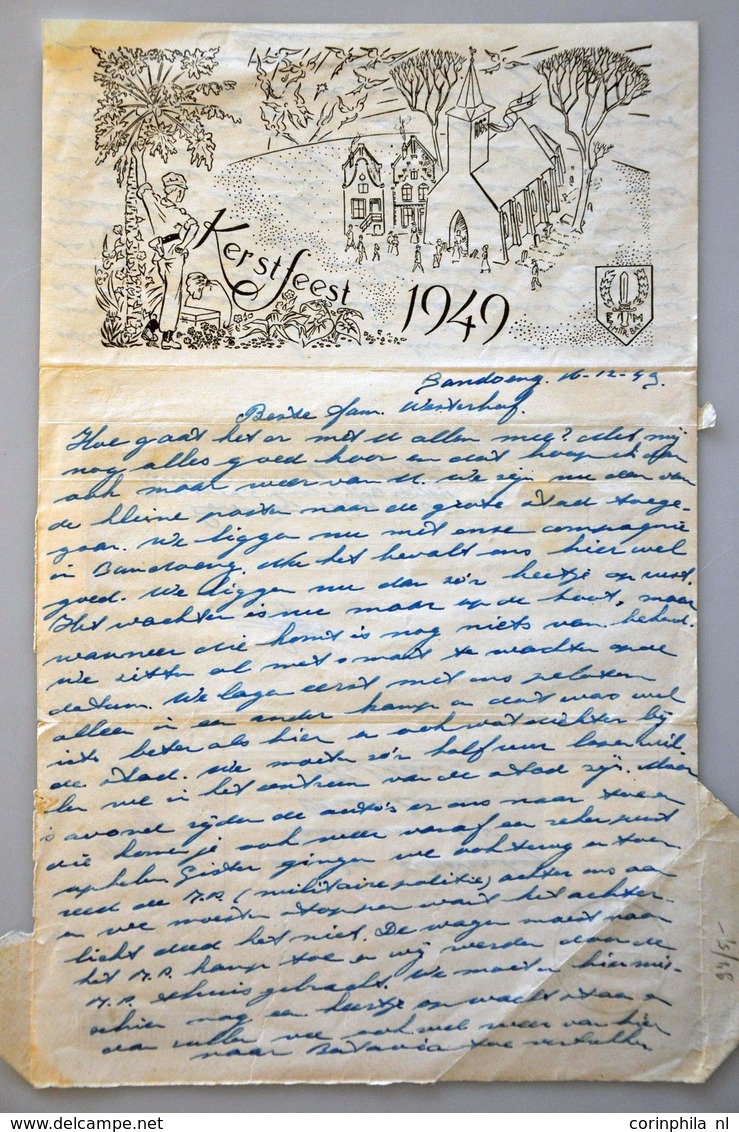 Kerstfeest 1949
E M
MITR. BAT.
Bandoeng. 16-12-49.
Beste Fam. Westerhof.
Hoe gaat het er met U allen mee? Met mij
nog alles goed hoor en dat hoop ik dan
ook maar weer van U. We zijn nu dan van
de kleine posten naar de grote stad toege-
gaan. We liggen nu met onze compagnie
in Bandoeng. Nu het bevalt ons hier wel
goed. We liggen nu dan zo'n beetje op rust.
Het wachten is nu maar op de boot, maar
wanneer die komt is nog niets van bekend.
We zitten al met smart te wachten op de
datum. We lagen eerst met ons peloton
alleen in een ander kamp en dat was wel
iets beter als hier en ook wat dichter bij
de stad. We moeten zo'n half uur lopen wil-
len we in het centrum van de stad zijn. Maar
's avonds rijden de auto's er ons naar toe en
die komen je ook weer vanaf een zeker punt
ophalen. Gister gingen we ook terug en toen
reed de M.P. (militaire politie) achter ons aan
en we moesten stoppen want het achter-
licht deed het niet. De wagen moest naar
het M.P. kamp toe en wij werden door de
M.P. thuis gebracht. We moeten hier mis-
schien nog een beetje op wacht staan en
dan zullen we ook wel weer van hier
naar Batavia toe vertrekken
94/5,-
corinphila nl